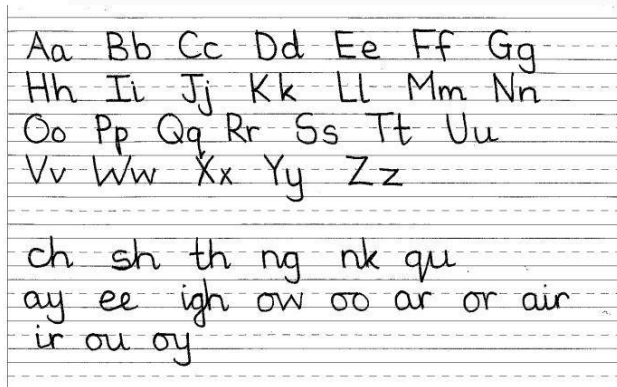 Aa Bb Cc Dd Ee Ff Gg
Hh Ii Jj Kk Ll Mm Nn
Oo Pp Qq Rr Ss Tt Uu
Vv Ww Xx Yy Zz
ch sh th ng nk qu
ay ee igh ow oo ar or air
ir ou oy